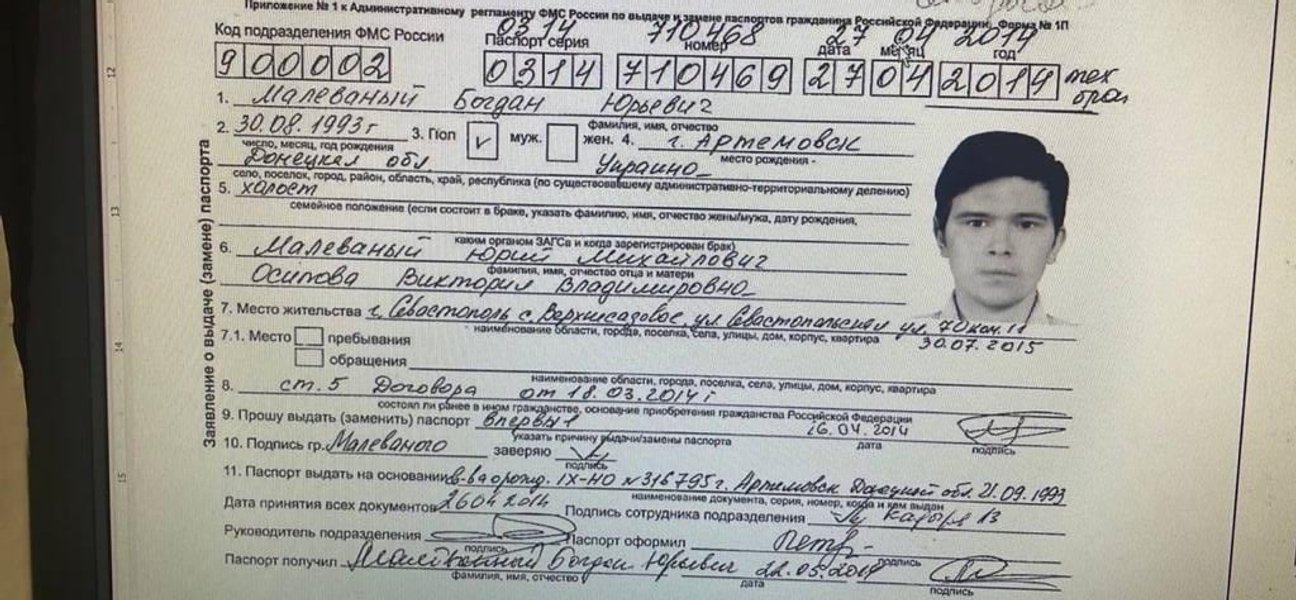 Приложение № 1 к Административному регламенту ФМС России по выдаче и замене паспортов гражданина Российской Федерации Форма № 1П
0314 710468 27 04 2014
Код подразделения ФМС России Паспорт серия номер дата месяц год
900002 0314 710469 27 04 2014 тех брак
1. Малеваный Богдан Юрьевич
фамилия, имя, отчество
2. 30.08.1993г 3. Пол V муж. жен. 4. г. Артемовск
число, месяц, год рождения место рождения -
Донецкая обл Украина
село, поселок, город, район, область, край, республика (по существовавшему административно-территориальному делению)
5. холост
семейное положение (если состоит в браке, указать фамилию, имя, отчество жены/мужа, дату рождения,
каким органом ЗАГСа и когда зарегистрирован брак)
6. Малеваный Юрий Михайлович
фамилия, имя, отчество отца и матери
Осипова Виктория Владимировна
7. Место жительства г. Севастополь с. Верхнесадовое, ул Севастопольская 70 ком. 11
наименование области, города, поселка, села, улицы, дом, корпус, квартира
30.07.2015
7.1. Место пребывания
обращения
наименование области, города, поселка, села, улицы, дом, корпус, квартира
8. ст. 5 Договора от 18.03.2014г
состоял ли ранее в ином гражданстве, основание приобретения гражданства Российской Федерации
9. Прошу выдать (заменить) паспорт впервые 26.04.2014
указать причину выдачи/замены паспорта дата подпись
10. Подпись гр. Малеваного заверяю
подпись
11. Паспорт выдать на основании св-ва о рожд. IX-НО № 316795 г. Артемовск Донецкой обл. 21.09.1993
наименование документа, серия, номер, когда и кем выдан
Дата принятия всех документов 26.04.2014 Подпись сотрудника подразделения
Руководитель подразделения Паспорт оформил
подпись подпись
Паспорт получил Малеваный Богдан Юрьевич 22.05.2014
фамилия, имя, отчество дата подпись
Заявление о выдаче (замене) паспорта
12
13
14
15